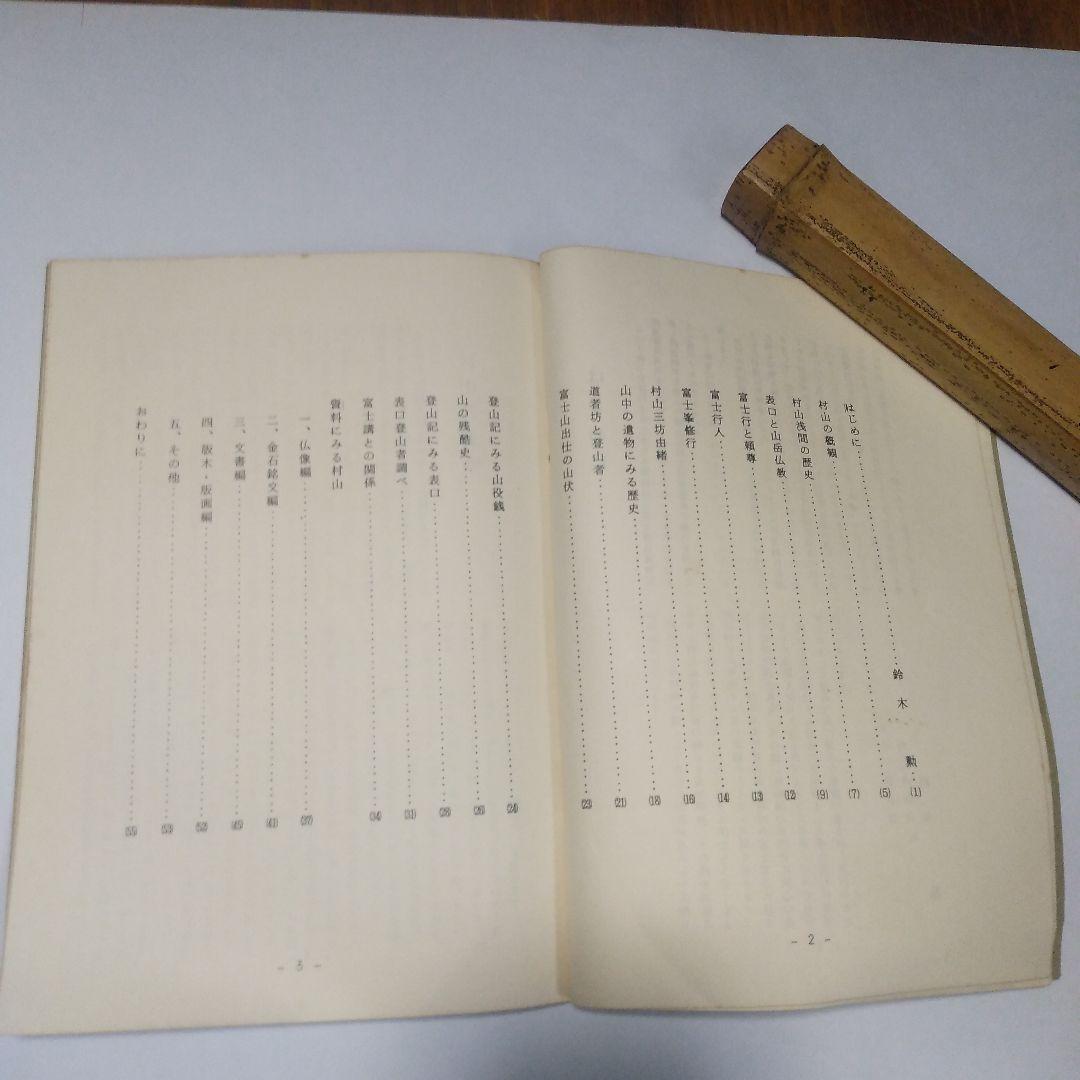 はじめに……鈴木 勲…(1)
村山の概観……(5)
村山浅間の歴史……(7)
表口と山岳仏教……(9)
富士行と頼尊……(12)
富士行人……(13)
富士峯修行……(14)
村山三坊由緒……(16)
山中の遺物にみる歴史……(18)
道者坊と登山者……(21)
富士山出仕の山伏……(23)
- 2 -
登山記にみる山役銭……(24)
山の残酷史……(26)
登山記にみる表口……(28)
表口登山者調べ……(31)
富士講との関係……(34)
資料にみる村山
一、仏像編……(37)
二、金石銘文編……(41)
三、文書編……(45)
四、版木・版画編……(52)
五、その他……(53)
おわりに……(55)
- 3 -